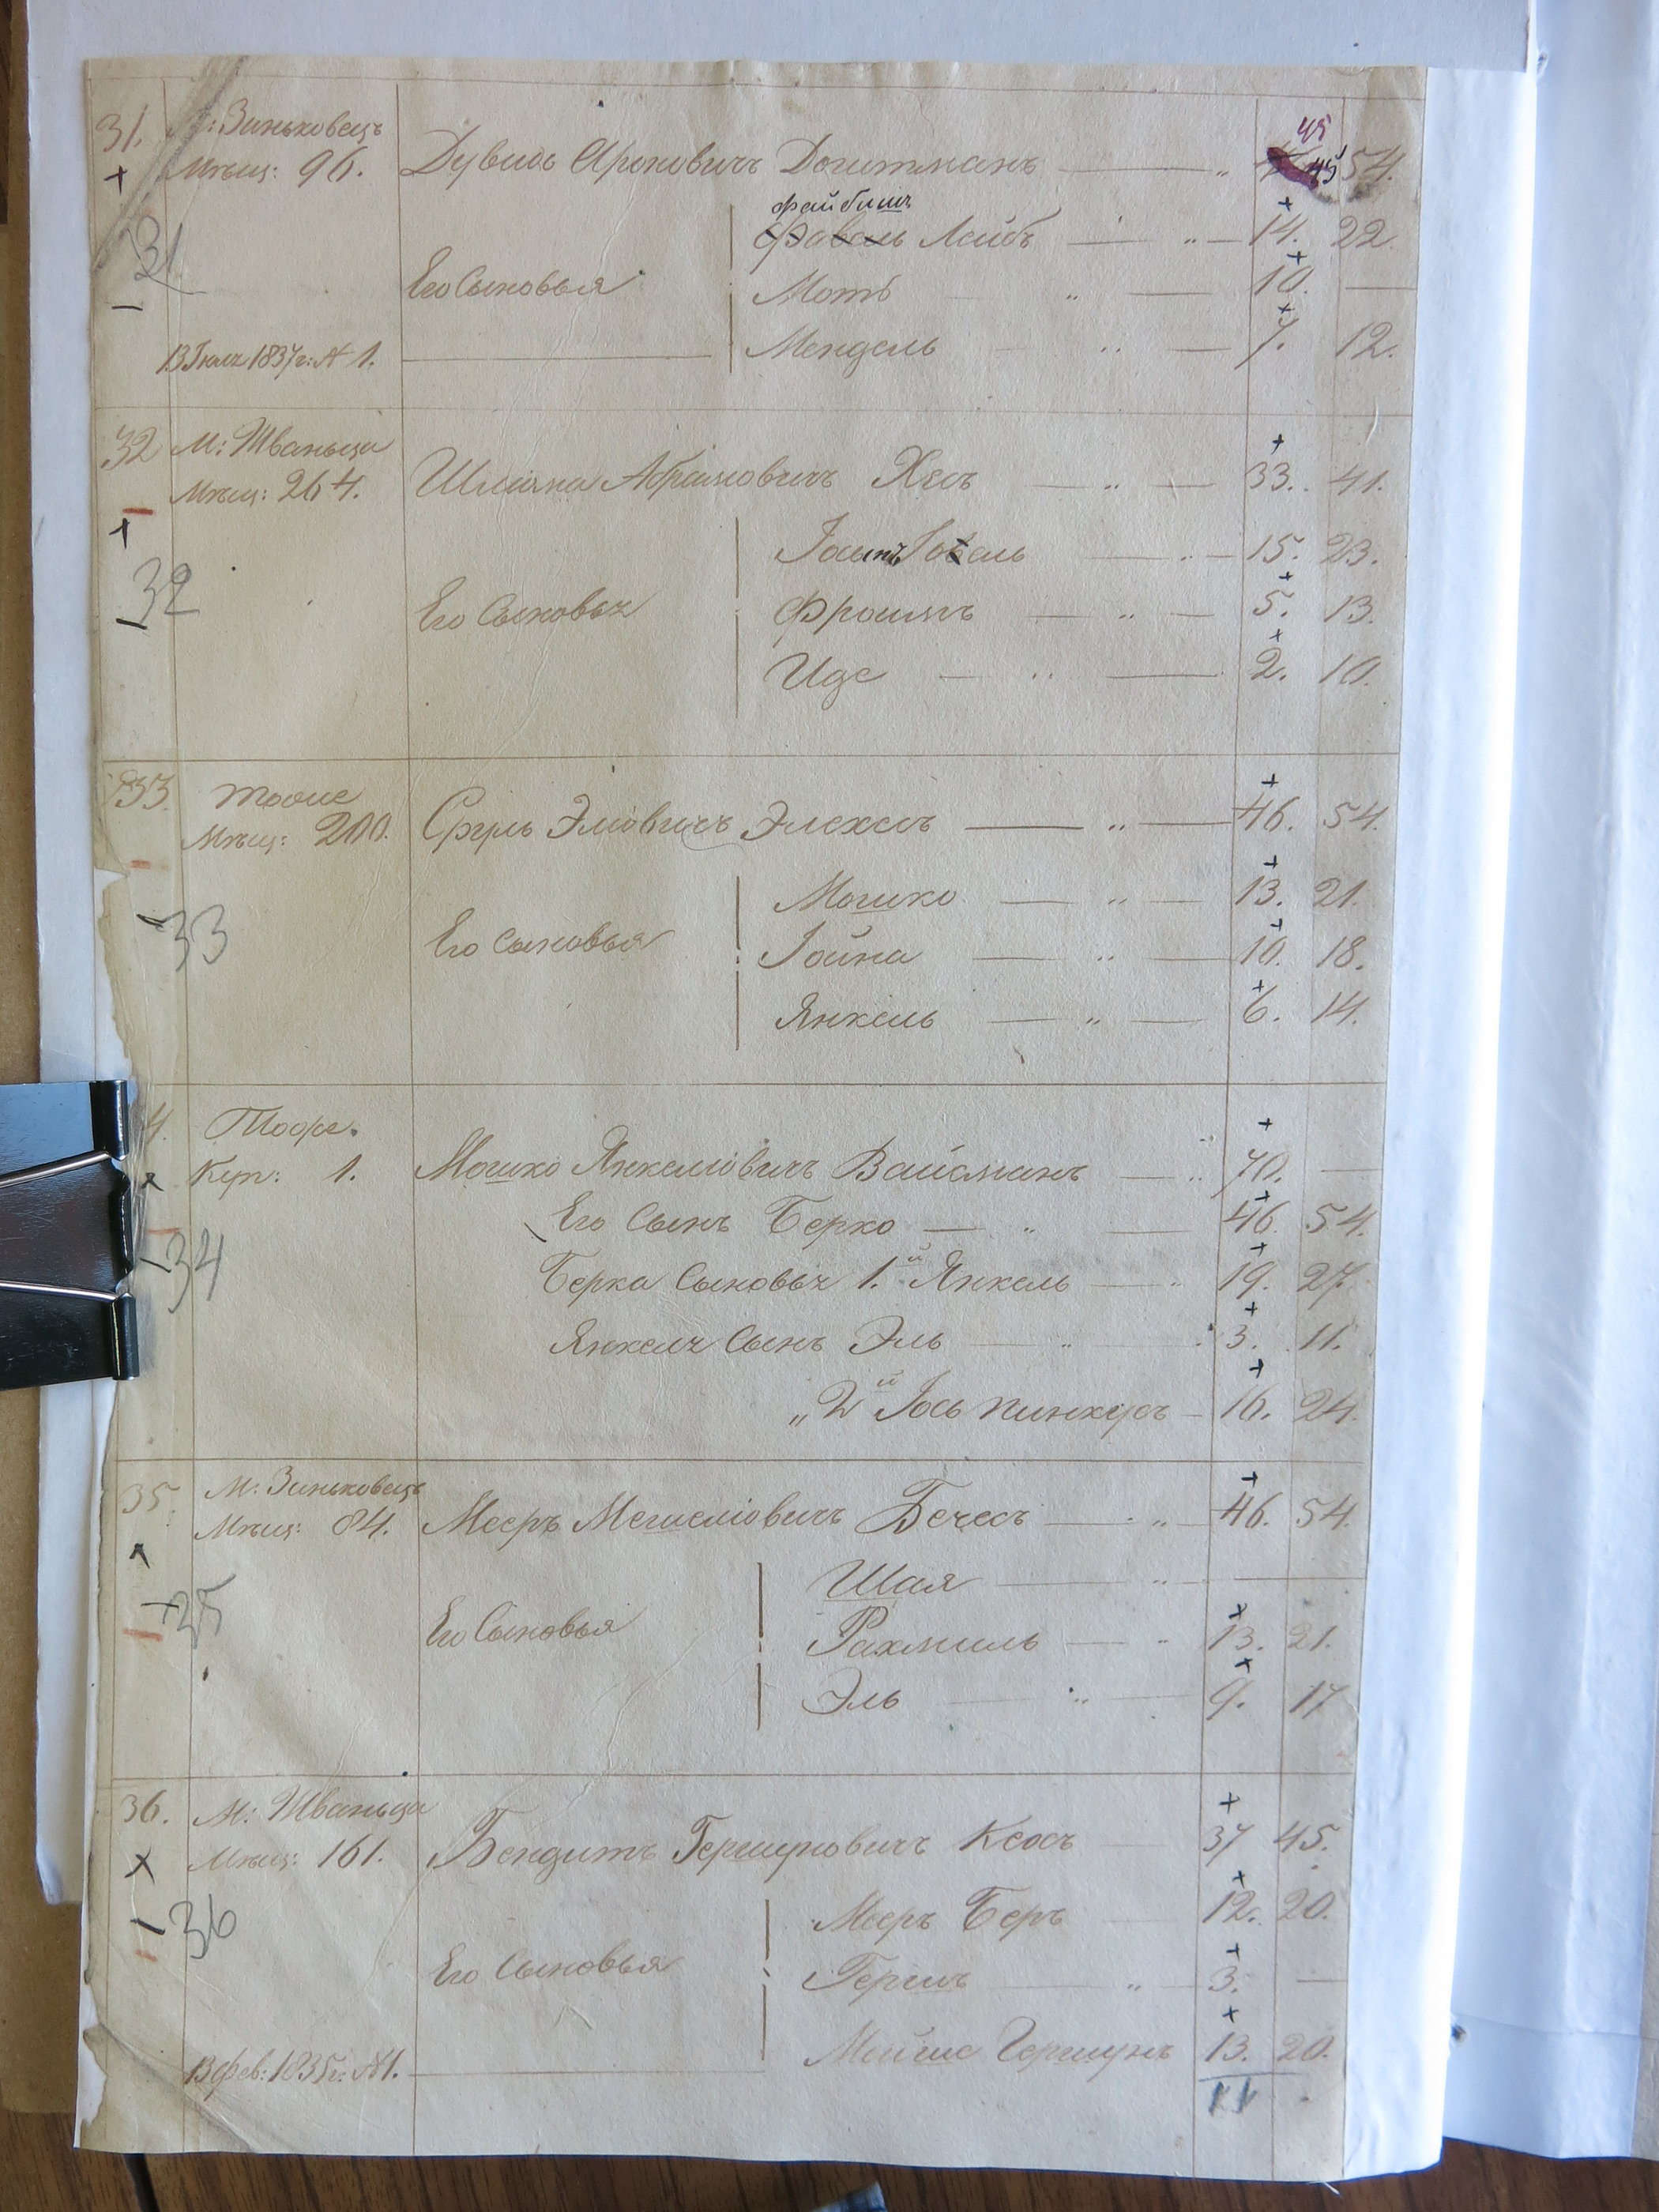 31. М: Зиньковецъ 45
Мѣщ: 96. Дувидъ Ароновичъ Дохтманъ 45 54.
файбишъ
Фавель Лейбъ 14. 22.
31
Его Сыновья Моть 10. —
13 Генв 1837г: № 1. Мендель 7. 12.
32 М: Жванца
Мѣщ: 264. Шлиома Абрамовичъ Хесъ 33. 41.
Іосипъ Іовель 15. 23.
32
Его Сыновья Фроимъ 5. 13.
Иде 2. 10.
33. Тоже
Мѣщ: 200. Сруль Эліовичъ Элехесъ 46. 54.
Мошко 13. 21.
33
Его Сыновья Іойна 10. 18.
Янкель 6. 14.
4. Тоже.
Куп: 1. Мошко Янкеліовичъ Вайсманъ 70. —
Его Сынъ Берко 46. 54.
34
Берка Сыновья 1.й Янкель 19. 27.
Янкеля Сынъ Эль 3. 11.
„ 2й Іось Пинкусъ 16. 24.
35. М: Зиньковецъ
Мѣщ: 84. Мееръ Мошеліовичъ Бечесъ 46. 54.
Шая —
35
Его Сыновья Рахмиль 13. 21.
Эль 9. 17
36. М: Жванца
Мѣщ: 161. Бендитъ Гершуновичъ Ксосъ 37 45.
Мееръ Беръ 12. 20.
36
Его Сыновья Гершъ 3. —
В фев: 1835г: №1. Мойше Гершунъ 13. 20.